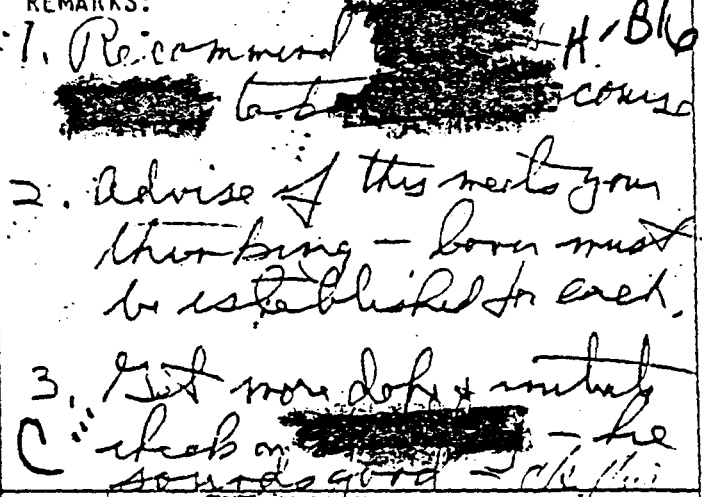 REMARKS:
1. Recommend H/B16
to course
2. Advise if this meets your
thinking — cover must
be established for each.
3. Get more dope & initiate
C check on — he
sounds good —